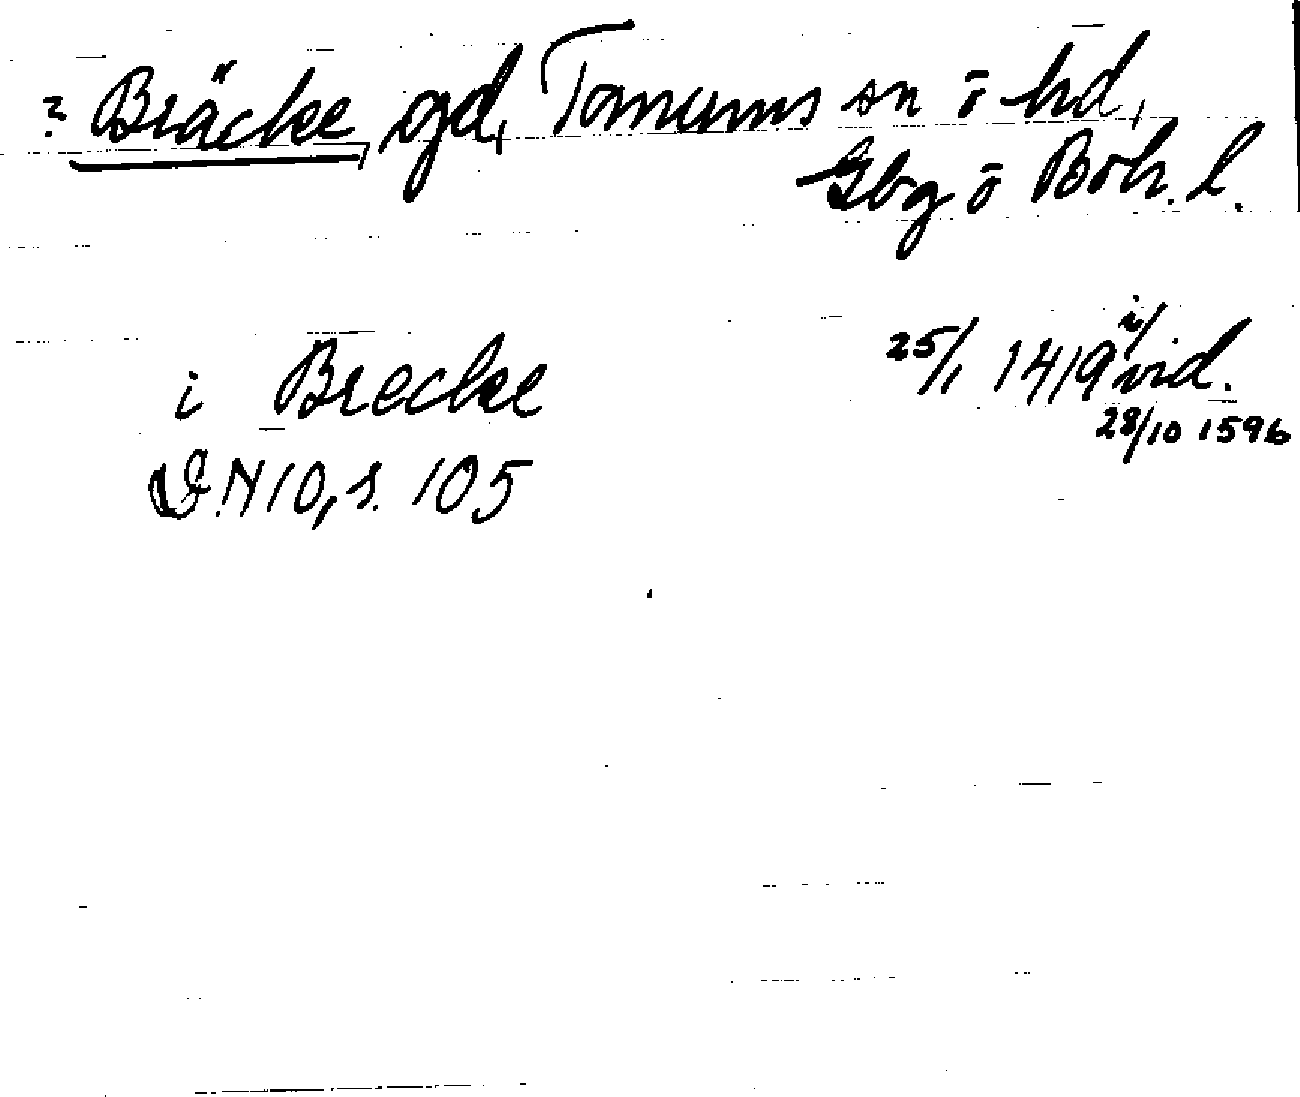 ? Bräcke, gd, Tanums sn ō hd,
Gbg ō Boh. l.
i Brecke 25/1 1419 i/ vid.
28/10 1596
D.N 10, s. 105